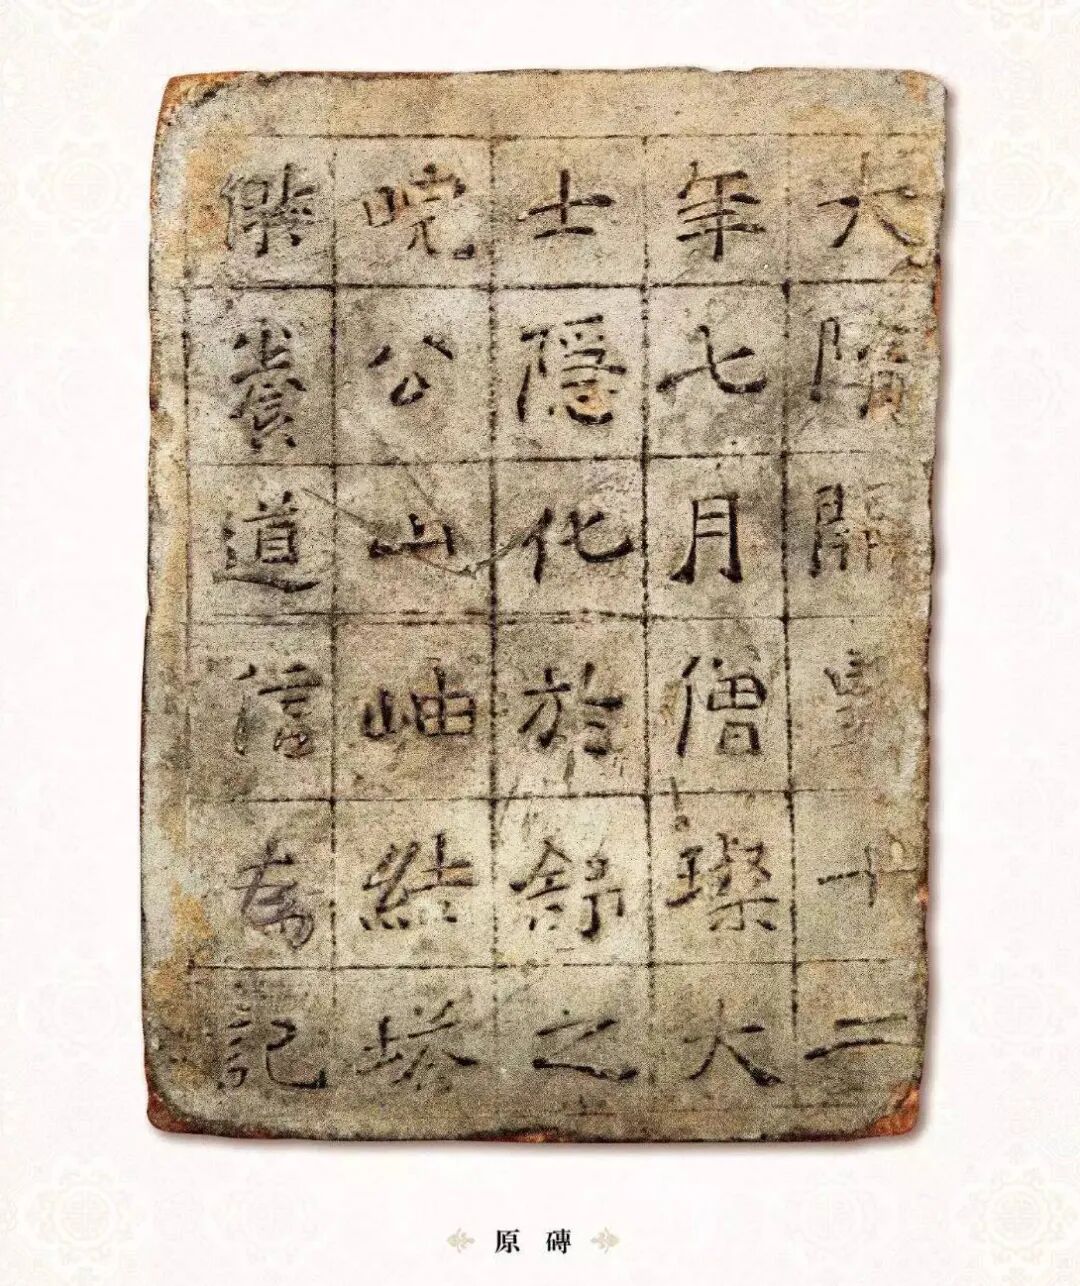 大隋開皇十二
年七月僧璨大
士隱化於舒之
皖公山岫結塔
供養道信為記
原磚